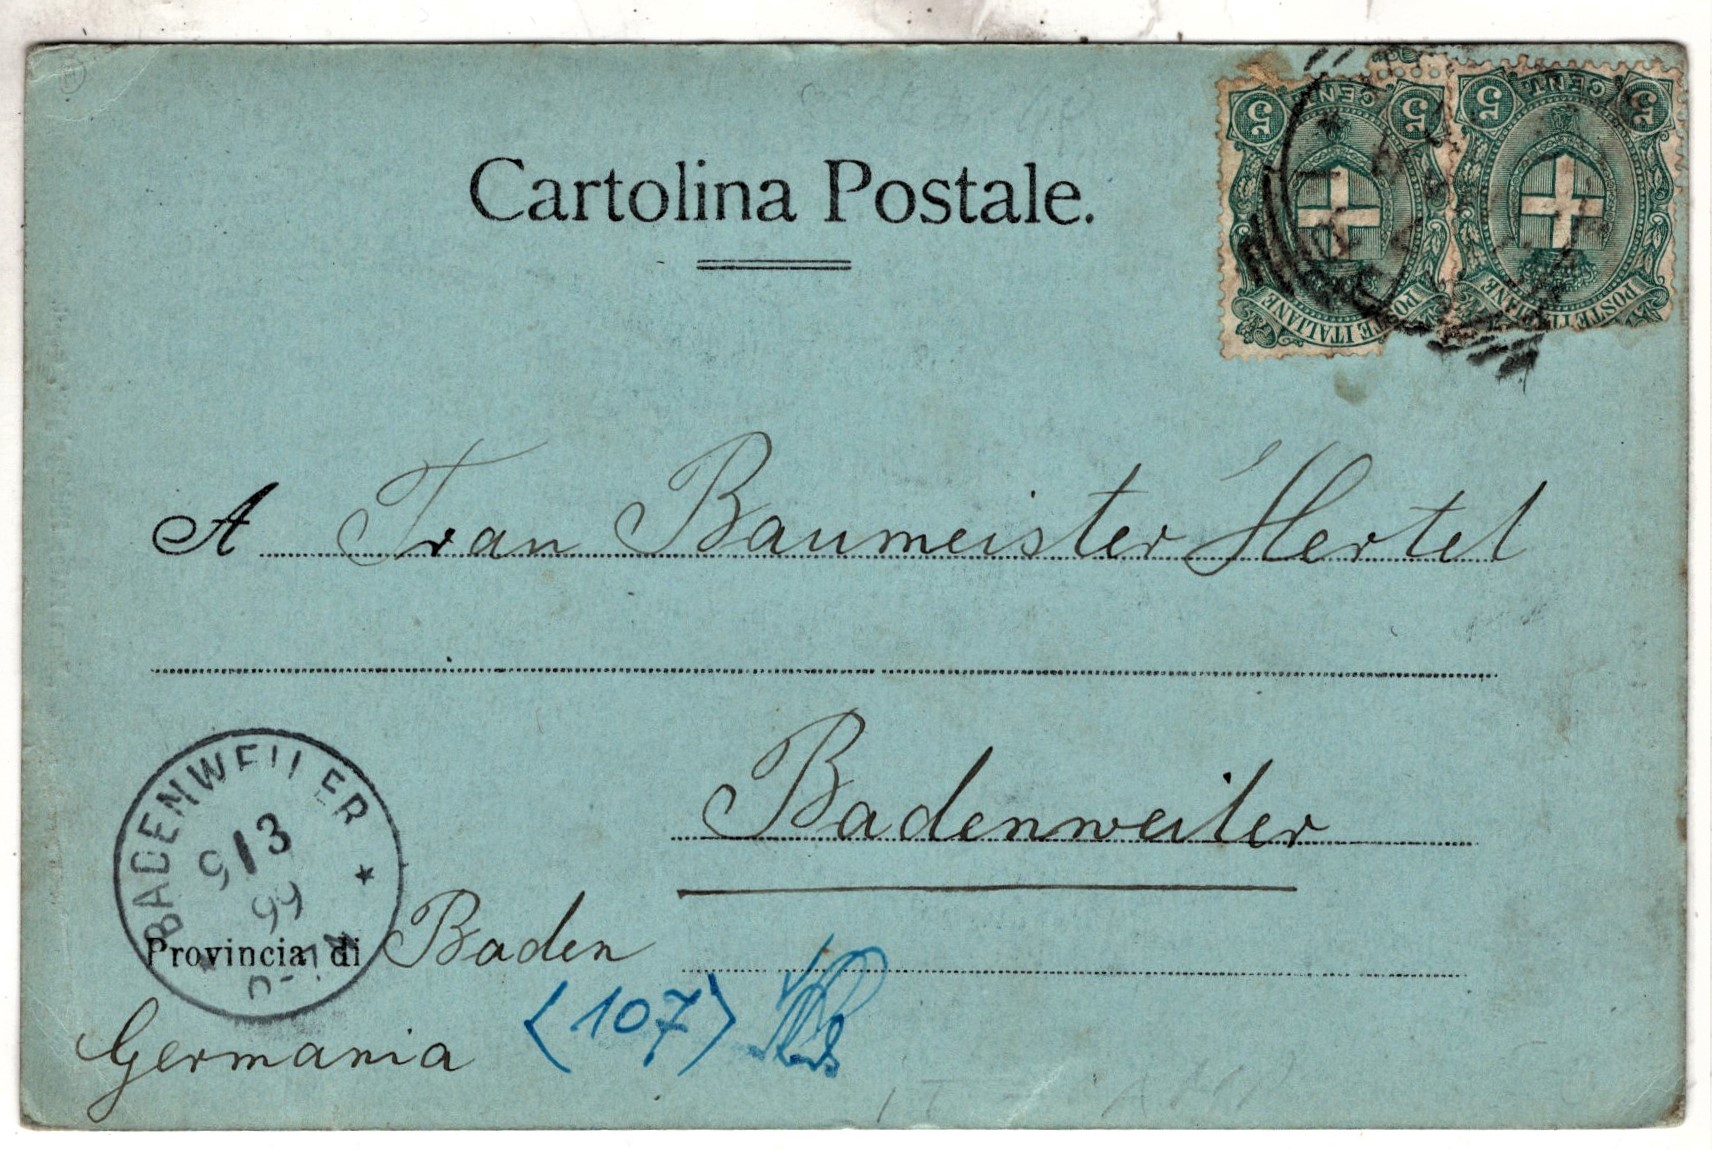 Cartolina Postale.
5 CENT. 5
POSTE ITALIANE
5 CENT. 5
POSTE ITALIANE
A Frau Baumeister Hertel
Badenweiler
BADENWEILER
9/3
99
Provincia di Baden
Germania
(107)